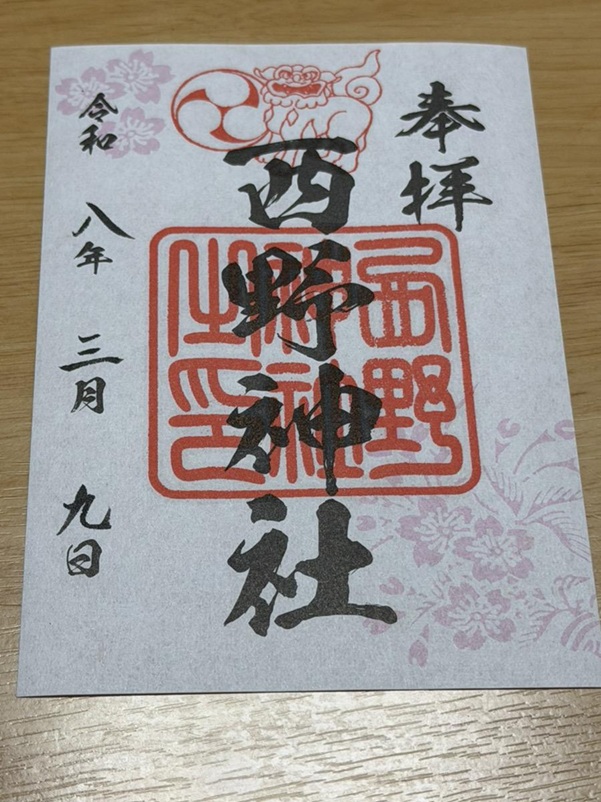 奉拝
西野神社
西野神社之印
令和八年三月九日